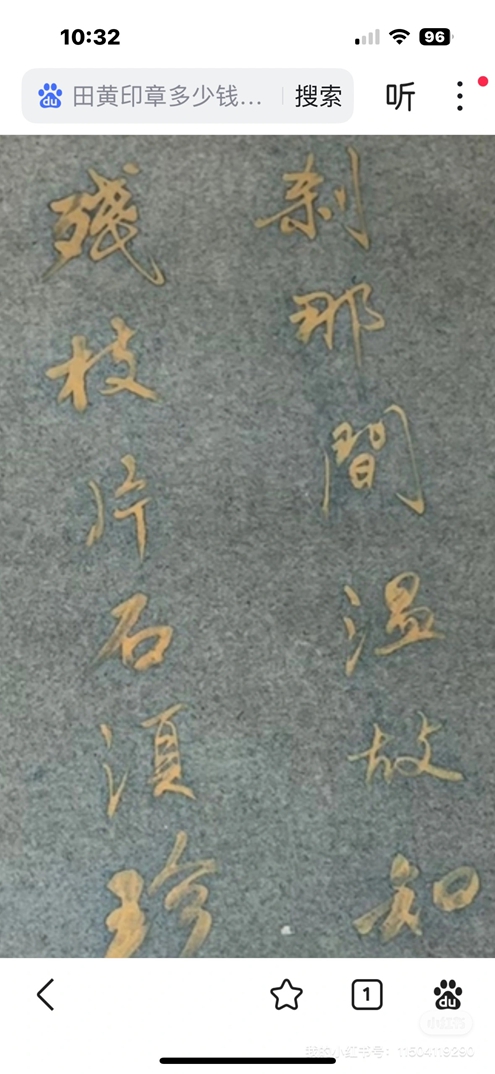 10:32
96
田黄印章多少钱...
搜索
听
刹那間温故知
残枝片石須珍
1
du
小红书
我的小红书号：11504119290